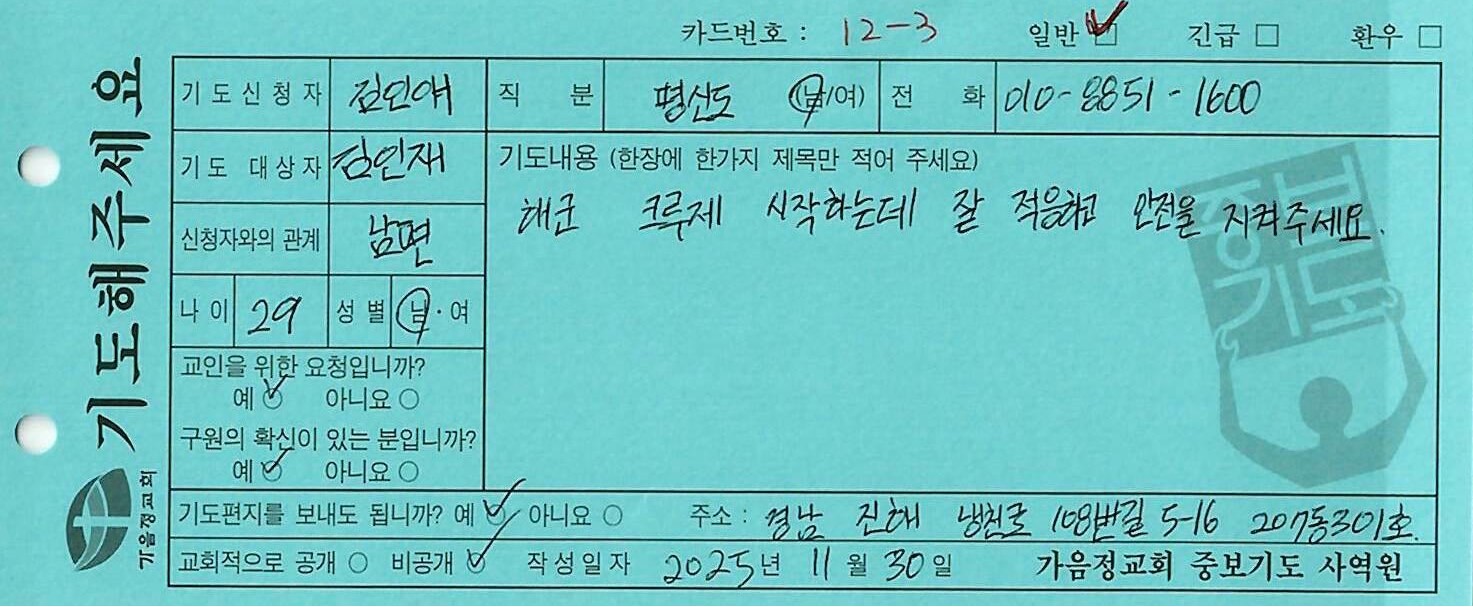 카드번호 : 12-3 일반 ☑ 긴급 □ 환우 □
기도해주세요
기도신청자 정인애 직분 평신도 (남/여) 전화 010-8851-1600
기도 대상자 김인재
신청자와의 관계 남편
나이 29 성별 남·여
교인을 위한 요청입니까?
예 ✓ 아니요 ○
구원의 확신이 있는 분입니까?
예 ✓ 아니요 ○
기도내용 (한장에 한가지 제목만 적어 주세요)
해군 크루제 시작하는데 잘 적응하고 안전을 지켜주세요.
중보기도
기도편지를 보내도 됩니까? 예 ✓ 아니요 ○ 주소 : 경남 진해 냉천로 108번길 5-16 207동301호.
교회적으로 공개 ○ 비공개 ✓ 작성일자 2025년 11월 30일 가음정교회 중보기도 사역원
가음정교회